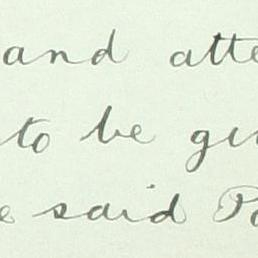 and atte
to be gi
e said Po